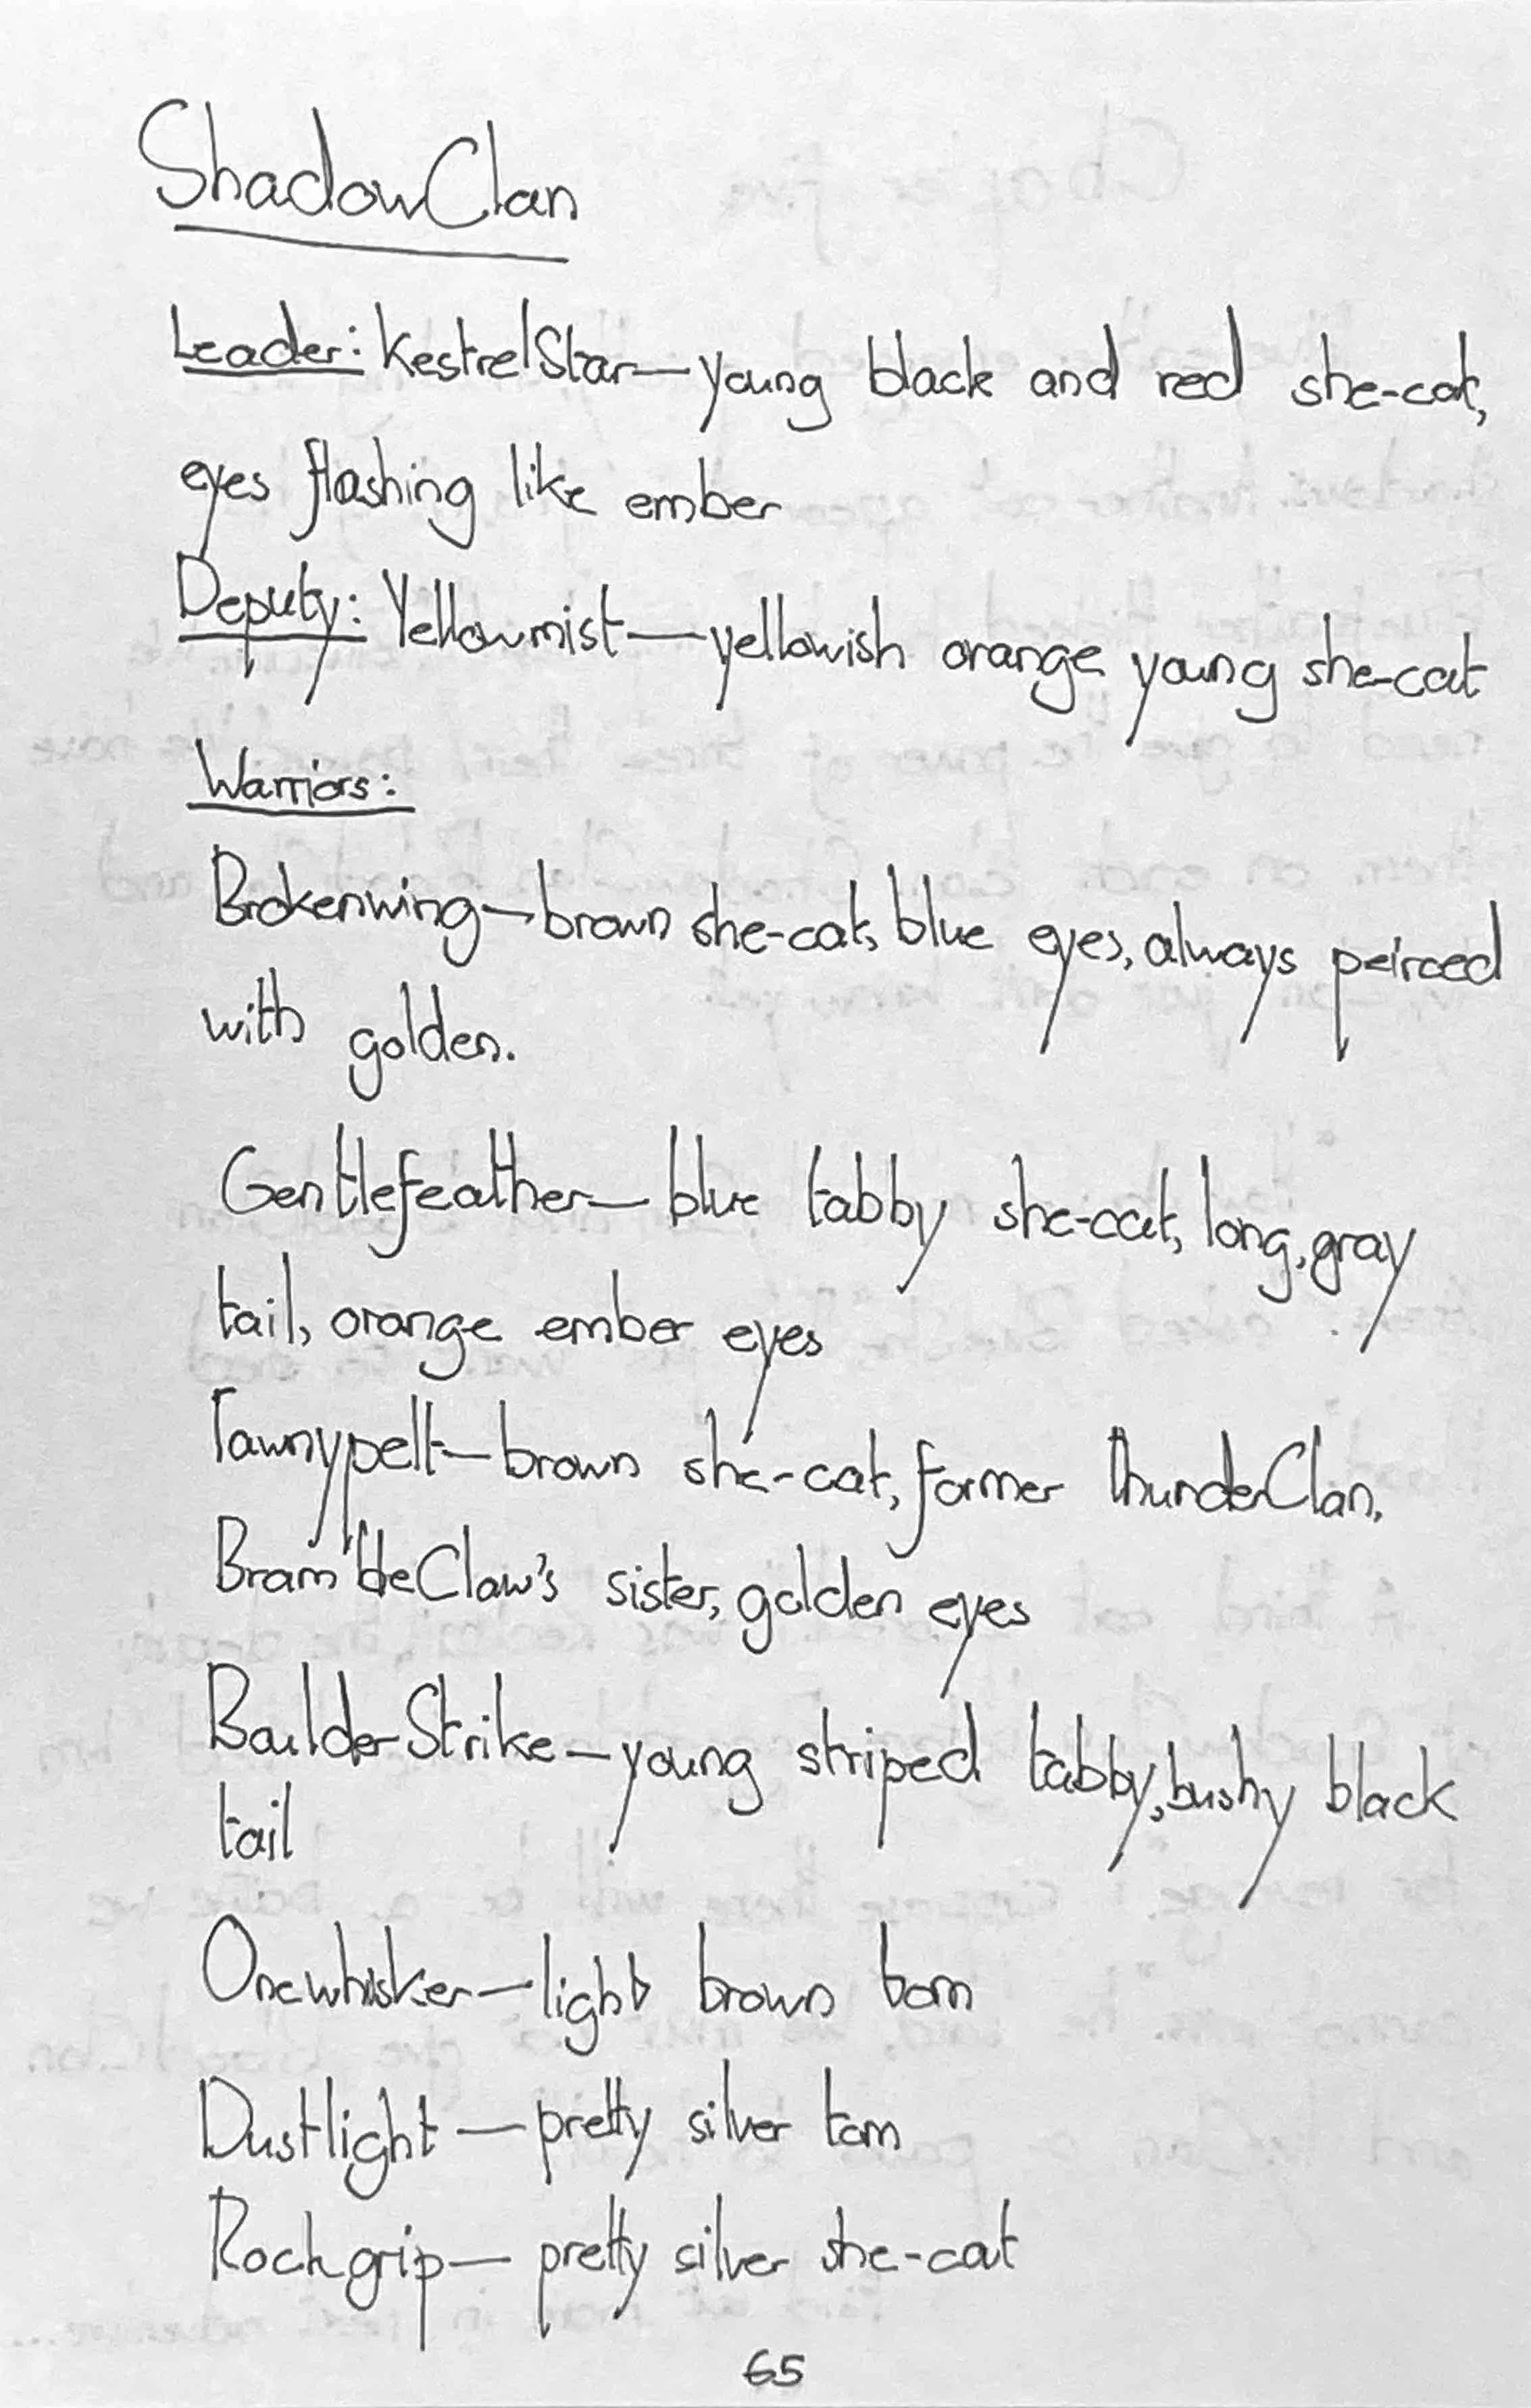 ShadowClan
Leader: KestrelStar—young black and red she-cat,
eyes flashing like ember
Deputy: Yellowmist—yellowish orange young she-cat
Warriors:
Brokenwing—brown she-cat, blue eyes, always peirced
with golden.
Gentlefeather—blue tabby she-cat, long, gray
tail, orange ember eyes
Tawnypelt—brown she-cat, former thunderClan,
BrambleClaw's sister, golden eyes
BoulderStrike—young striped tabby, bushy black
tail
Onewhisker—light brown tom
Dustlight—pretty silver tom
Rockgrip—pretty silver she-cat
65